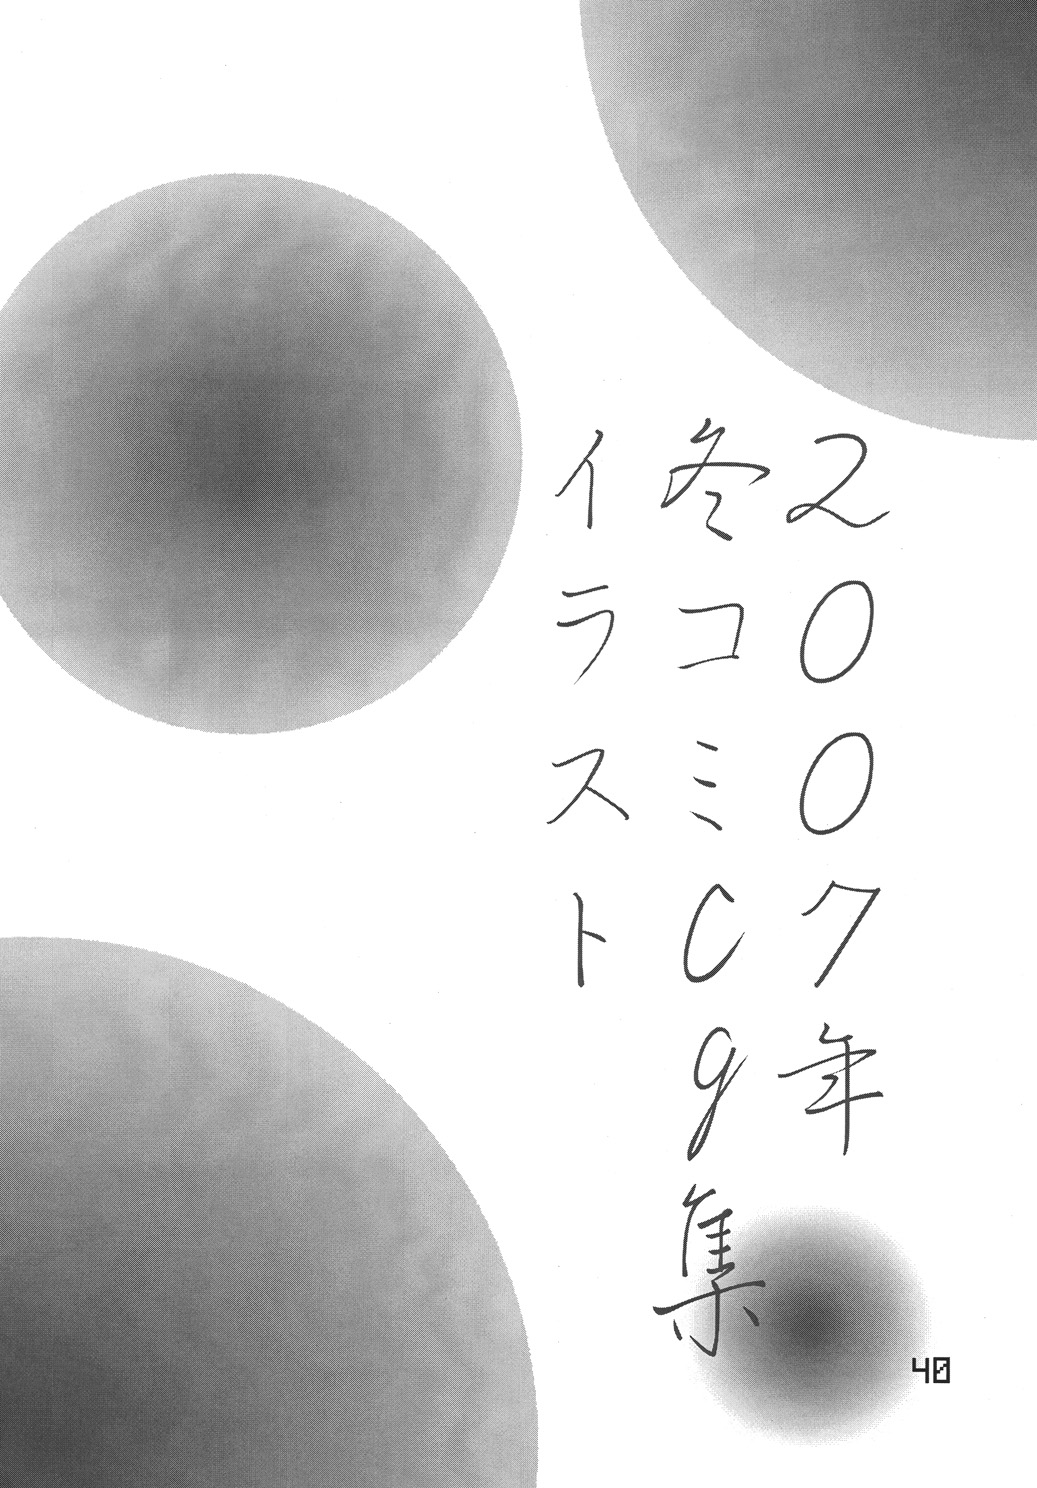 ２００７年
冬コミCg集
イラスト
40